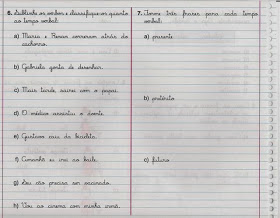 6. Sublinhe os verbos e classifique-os quanto
ao tempo verbal:
a) Maria e Renan correram atrás do
cachorro.
b) Gabriela gosta de desenhar.
c) Mais tarde sairei com o papai.
d) O médico assistiu o doente.
e) Gustavo caiu da bicicleta.
f) Amanhã eu irei ao baile.
g) Seu cão precisa ser vacinado.
h) Vou ao cinema com minha irmã.
7. Forme três frases para cada tempo
verbal:
a) presente
b) pretérito
c) futuro